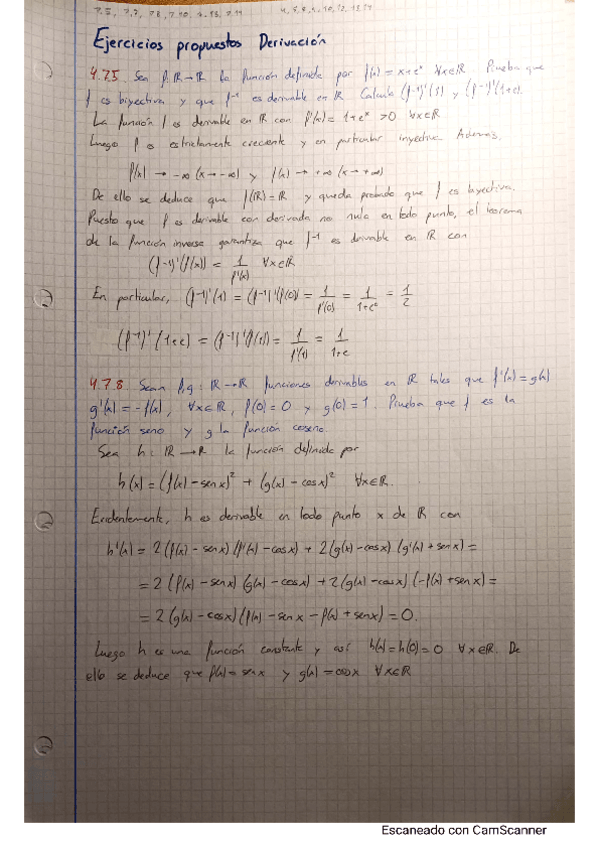 Ejercicios propuestos Derivación
4.7.5 Sea f: ℝ → ℝ la función definida por f(x) = x + eˣ ∀x∈ℝ. Prueba que
f es biyectiva y que f⁻¹ es derivable en ℝ. Calcula (f⁻¹)'(1) y (f⁻¹)'(1+e).
La función f es derivable en ℝ con f'(x) = 1 + eˣ > 0 ∀x∈ℝ
Luego f es estrictamente creciente y en particular inyectiva. Además,
f(x) → -∞ (x → -∞) y f(x) → +∞ (x → +∞)
De ello se deduce que f(ℝ) = ℝ y queda probado que f es biyectiva.
Puesto que f es derivable con derivada no nula en todo punto, el teorema
de la función inversa garantiza que f⁻¹ es derivable en ℝ con
(f⁻¹)'(f(x)) = 1/f'(x) ∀x∈ℝ
En particular, (f⁻¹)'(1) = (f⁻¹)'(f(0)) = 1/f'(0) = 1/(1+e⁰) = 1/2
(f⁻¹)'(1+e) = (f⁻¹)'(f(1)) = 1/f'(1) = 1/(1+e)
4.7.8 Sean f,g: ℝ → ℝ funciones derivables en ℝ tales que f'(x) = g(x)
g'(x) = -f(x), ∀x∈ℝ, f(0) = 0 y g(0) = 1. Prueba que f es la
función seno y g la función coseno.
Sea h: ℝ → ℝ la función definida por
h(x) = (f(x) - sen x)² + (g(x) - cos x)² ∀x∈ℝ.
Evidentemente, h es derivable en todo punto x de ℝ con
h'(x) = 2(f(x) - sen x)(f'(x) - cos x) + 2(g(x) - cos x)(g'(x) + sen x) =
= 2(f(x) - sen x)(g(x) - cos x) + 2(g(x) - cos x)(-f(x) + sen x) =
= 2(g(x) - cos x)(f(x) - sen x - f(x) + sen x) = 0.
Luego h es una función constante y así h(x) = h(0) = 0 ∀x∈ℝ. De
ello se deduce que f(x) = sen x y g(x) = cos x ∀x∈ℝ
Escaneado con CamScanner